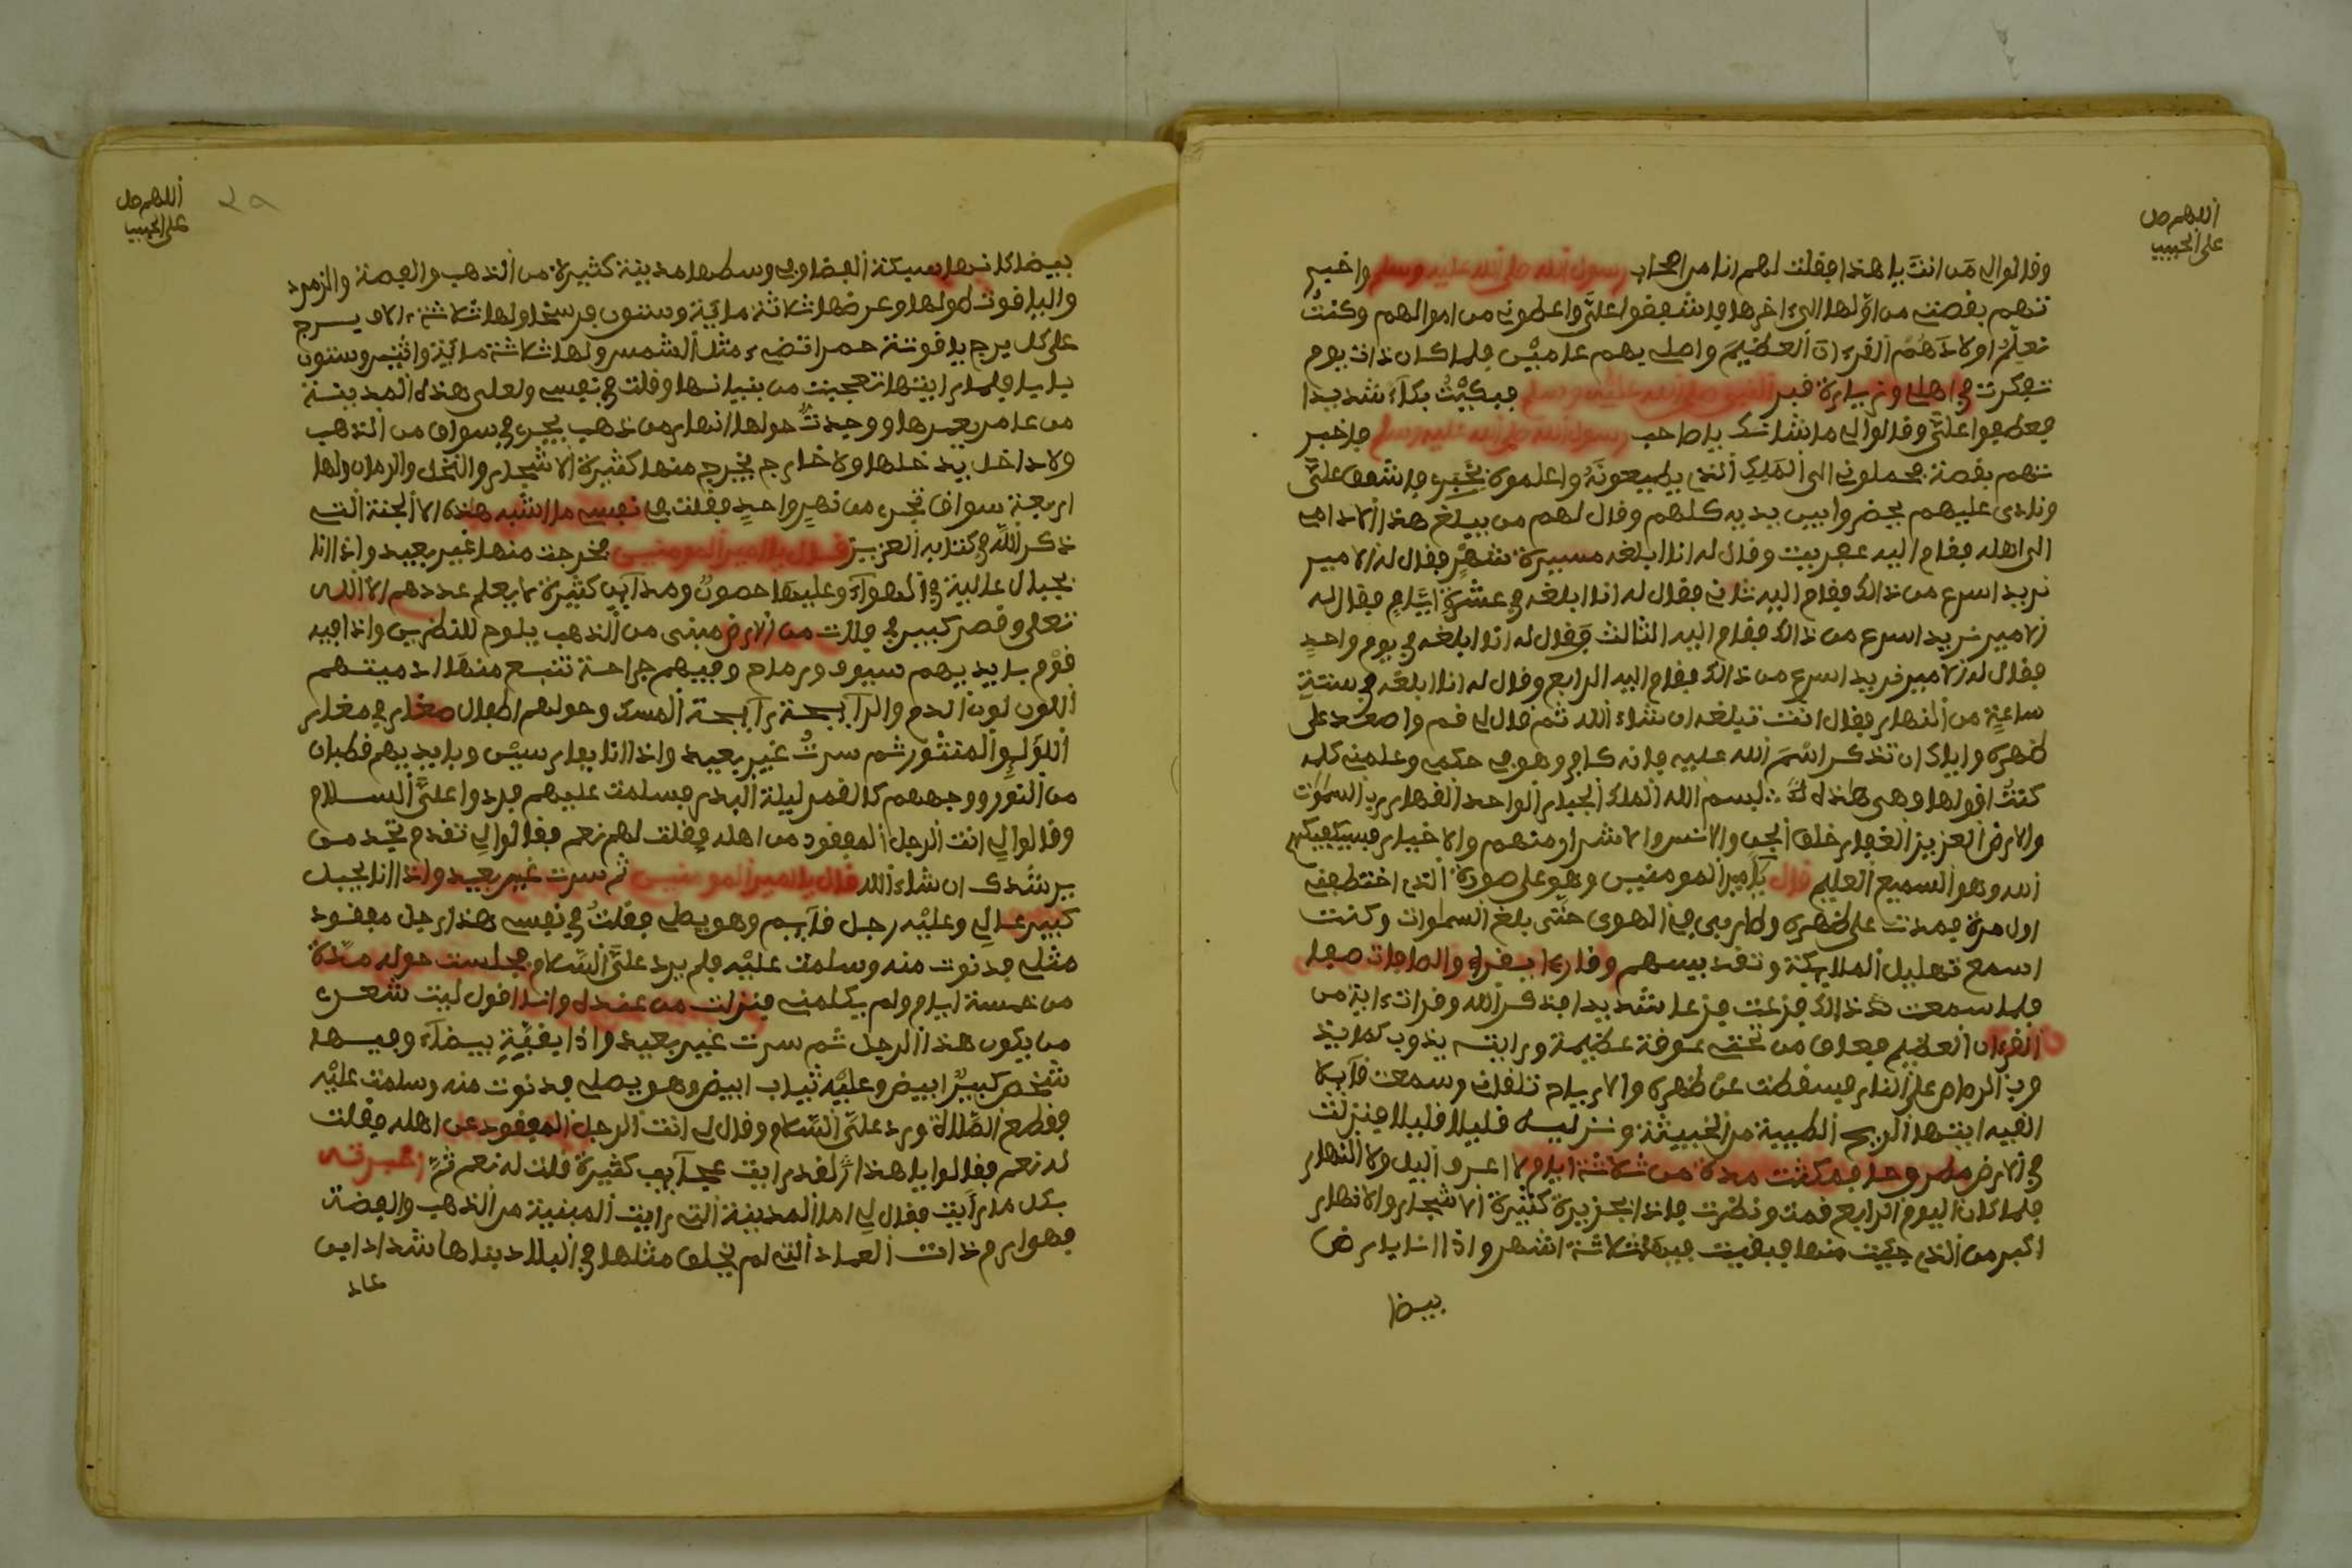 اللهم صل
على الحبيب
وقالوا لي من انتَ يا هذا فقلت لهم انا من اصحاب رسول الله صلى الله عليه وسلم واخبر
تهم بقصتي من اوّلها الى ءاخرها فاشفقوا علىَّ واعطوني من اموالهم وكنتُ
نعلّم اولادَهمُ القرءان العظيمَ واصلي بهم عاميْن فلما كان ذات يوم
تفكرت في اهلي وزيارة قبر النبي صلى الله عليه وسلم فبكيْتُ بكاءً شديدا
فعطفوا علىَّ وقالوا لي ما شانك يا صاحب رسول الله صلى الله عليه وسلم فاخبر
تهم بقصة فحملوني الى المَلِكِ الذي يطيعونَهُ واعلموه بخَبَرِي فاشفق علىَّ
ونادى عليهم فحضروا بين يديه كلهم وقال لهم من يبلغ هذا الادامي
الى اهله فقام اليه عفريت وقال له انا ابلغه مسيرة شهْرٍ فقال له الامير
نريد اسرع من ذالك فقام اليه ثاني فقال له انا ابلغه في عشرَةِ ايَّامٍ فقال له
الامير نريد اسرع من ذالك فقام اليه الثالث وقال له انا ابلغه في يوم واحدٍ
فقال له الامير نريد اسرع من ذالك فقام اليه الرابع وقال له انا ابلغه في ستةِ
ساعةٍ من النهار فقال انت تبلغه ان شاء الله ثم قال لي قم واصعد على
ظهره واياك ان تذكر اسْمَ الله عليه فانه كافر وهو في حكمي وعلمني كلمه
كنتُ اقولها وهى هٰذه لسم الله الملك الجبار الواحد القهار رب السمٰوٰت
والارض العزيز الغفار خلق الجن والانس والاشرار منهم والاخيار فسيكفيكهم
الله وهو السميع العليم قال يٓامير المومنين وهو على صورة الذي اختطفني
اول مرة فمدت على ظهره وطار بي في الهوى حتَّى بلغ السمٰوات وكنت
اسمع تهليل الملايكة وتقديسهم وقاريا يقرا والصافات صفا
فلما سمعت ذالك فزعت فزعا شديدا فذكر الله وقرات ءاية من
القرءان العظيم فعاق من تحتي عوقة عظيمة ورايته يذوب كما يذ
وب الرصاص على النار فسقطت عن ظهره والارياح تلقفت وسمعت قآيلا
القيه ايتها الريح الطيبة من الخبيثة ونزليه قليلا قليلا فنزلت
في الارض مطروحا فمكثت مدة من ثلاثة ايام لا اعرف اليل ولا النهار
فلما كان اليوم الرابع قمت ونظرت فاذا بجزيرة كثيرة الاشجار والانهار
اكبر من الذي جيت منها فبقيت فيها ثلاثة اشهر واذا انا بارض
بيضا
اللهم صل
على الحبيب
بيضا كانها سبيكة الفضا وفي وسطها مدينة كثيرة من الذهب والفضة والزمرد
والياقوت طولها وعرضها ثلاثة ماية وستون فرسخا ولها ثلاثة ءالاف برج
على كل برج ياقوتة حمرا تضيء مثل الشمس ولها ثلاثة ماية واثنين وستون
بابا فلما رايتها تعجبت من بنيانها وقلت في نفسي ولعلى هذه المدينة
من عامر يعمرها ووجدتُ حولها انهار من ذهب يجرى في سواق من الذهب
ولا داخل يدخلها ولا خارج يخرج منها كثيرة الاشجار والنخل والرمان ولها
اربعة سواق تجرى من نهرٍ واحدٍ فقلت في نفسي ما اشبه هذه الا الجنة التي
ذكر الله في كتابه العزيز قال يا امير المومنين فخرجت منها غير بعيد واذا انا
بجبال عالية في الهوآء وعليها حصون ومدآين كثيرة لا يعلم عددهم الا الله
تعلى وقصر كبير في فلات من الارض مبنى من الذهب يلوح للناظرين واذا فيه
قوْم بايديهم سيوف ورماح وفيهم جراحة تنبع منها ادميتهم
اللون لون الدم والرآيحة رآيحة المسك وحولهم اطفال صغار في مغار
اللؤلِؤ المنثور ثم سرتُ غير بعيد واذا انا بفارسيْن وبايديهم قطبان
من النور ووجههم كالقمر ليلة البدر فسلمت عليهم فردوا علىَّ السلام
وقالوا لي انت الرجل المفقود من اهله فقلت لهم نعم فقالوا لي تقدم تجد من
يرشدك ان شاء الله قال يا امير المومنين ثم سرت غير بعيد واذا انا بجبل
كبير عالِي وعليْه رجل قآيم وهو يصلي فقلتُ في نفسي هذا رجل مفقود
مثلي فدنوت منه وسلمت عليْه فلم يرد علىَّ السّلام فجلست حوله مدّة
من خمسة ايام ولم يكلمني فنزلت من عنده وانا اقول ليت شعرى
من يكون هذا الرجل ثم سرت غير بعيد واذا بقبّةٍ بيضآء وفيها
شخص كبيرٌ ابيض وعليْه ثياب ابيض وهو يصلي فدنوت منه وسلمت عليْه
فقطع الصّلاة ورد علىَّ السّلام وقال لي انت الرجل المفقود عن اهله فقلت
له نعم فقالوا يا هذا لقد رايت عجآيب كثيرة قلت له نعم ثمّ اخبرته
بكل ما رايت فقال لي اما المدينة التي رايت المبنية من الذهب والفضة
فهو ارم ذات العماد التي لم يخلق مثلها في البلاد بناها شداد ابن
عاد